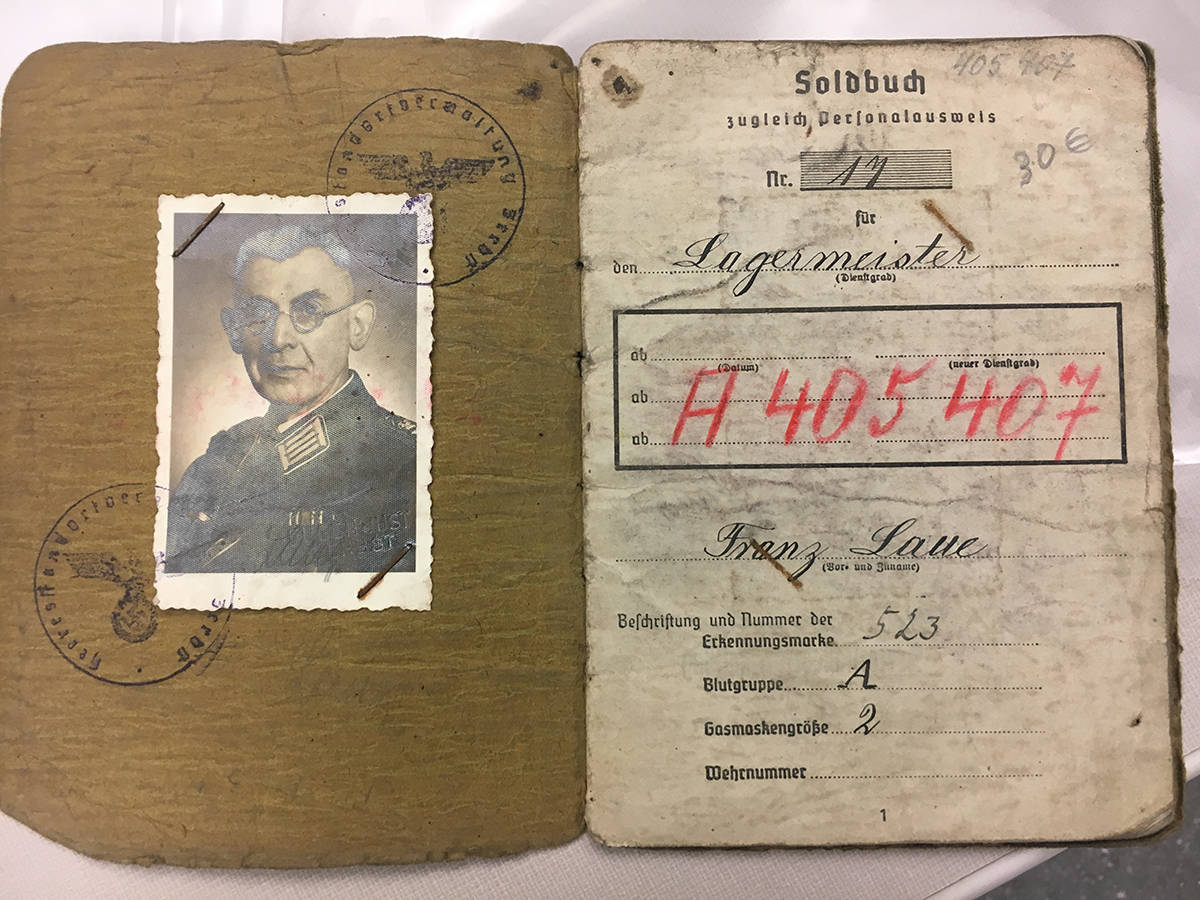 Heeresstandortverwaltung Zerbst
Heeresstandortverwaltung Zerbst
405 407
Soldbuch
zugleich Personalausweis
30 €
Nr. 17
für
den Lagermeister
(Dienstgrad)
ab
(Datum) (neuer Dienstgrad)
ab A 405 407
ab
Franz Laue
(Vor- und Zuname)
Beschriftung und Nummer der
Erkennungsmarke 523
Blutgruppe A
Gasmaskengröße 2
Wehrnummer
1